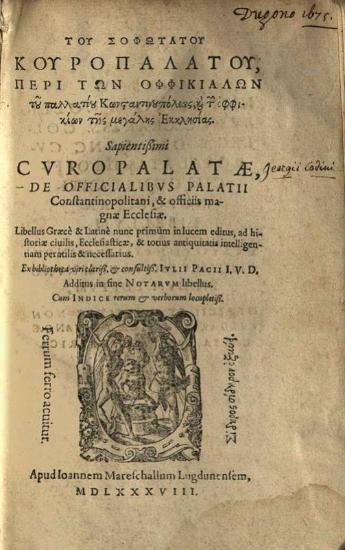 Dugono 1675.
ΤΟΥ ΣΟΦΩΤΑΤΟΥ
ΚΟΥΡΟΠΑΛΑΤΟΥ,
ΠΕΡΙ ΤΩΝ ΟΦΦΙΚΙΑΛΩΝ
τοῦ παλλατίου Κωνσταντινουπόλεως, ϗ τ ὀφφι-
κίων τῆς μεγάλης Ἐκκλησίας.
Sapientißimi
CVROPALATÆ, Georgii Codini
DE OFFICIALIBVS PALATII
Constantinopolitani, & officiis ma-
gnæ Ecclesiæ.
Libellus Græcè & Latinè nunc primùm in lucem editus, ad hi-
storiæ ciuilis, Ecclesiasticæ, & totius antiquitatis intelligen-
tiam perutilis & necessarius.
Ex bibliotheca viri clariss. & consultiss. IVLII PACII I. V. D.
Additus in fine NOTARVM libellus.
Cum INDICE rerum & verborum locupletiss.
Ferrum ferro acuitur.
Σίδηρος σίδηρον ὀξύνει.
Apud Ioannem Mareschallum Lugdunensem,
MDLXXXVIII.